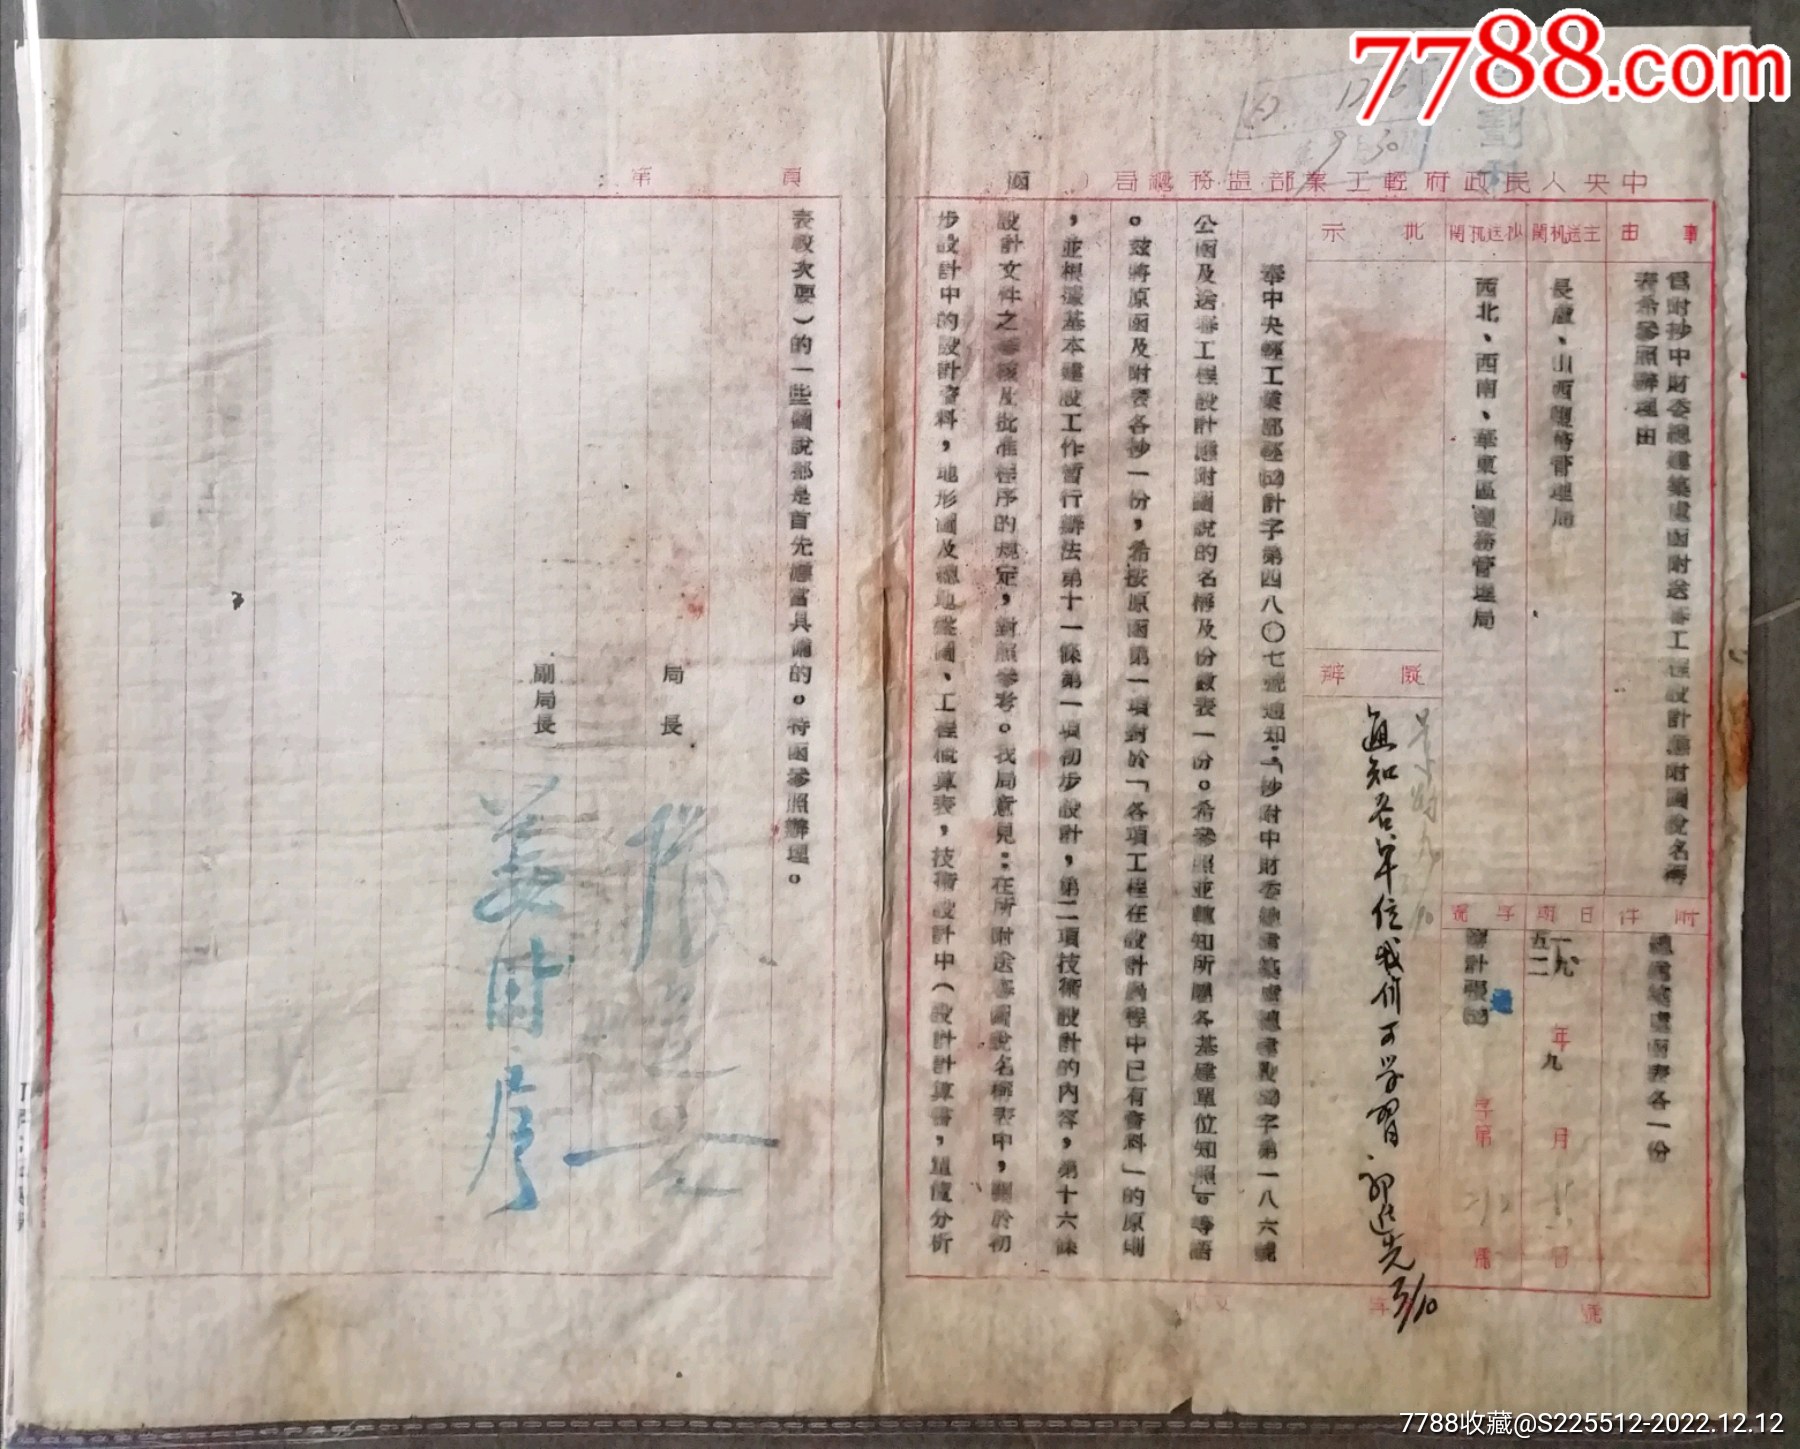 7788.com
中央人民政府輕工業部鹽務總局（ ）函
事由
爲附抄中財委總建築處函附送審工程設計應附圖說名稱
表希參照辦理由
主送机関
長蘆、山西鹽務管理局
抄送机関
西北、西南、華東區鹽務管理局
批示
擬辦
通知各单位我们可学習
3/10
附件
總建築處函表各一份
日期
一九五二年九月 日
字号
字第 號
奉中央輕工業部輕(52)計字第四八〇七號通知：「抄附中財委總建築處總建設(52)字第一八六號
公函及送審工程設計應附圖說的名稱及份數表一份。希參照並轉知所屬各基建單位知照」。等語
。茲將原函及附表各抄一份，希按原函第一項對於「各項工程在設計過程中已有資料」的原則
，並根據基本建設工作暫行辦法第十一條第一項初步設計，第二項技術設計的內容，第十六條
設計文件之審核及批准程序的規定，對照參考。我局意見：在所附送審圖說名稱表中，關於初
步設計中的設計資料，地形圖及總地盤圖、工程概算表，技術設計中（設計計算書，單價分析
第 頁
表較次要）的一些圖說都是首先應當具備的。特函參照辦理。
局長
副局長
7788收藏@S225512-2022.12.12